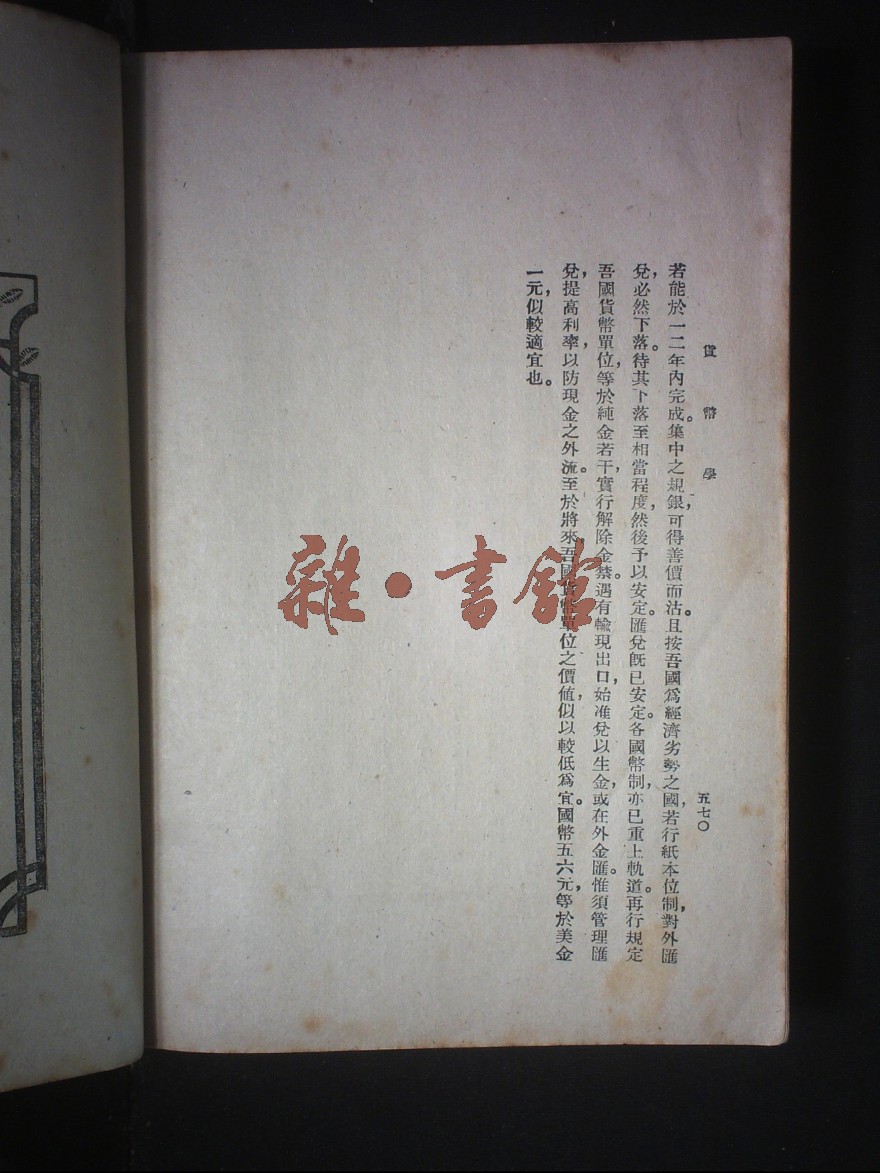 貨幣學
五七〇
若能於一二年內完成。集中之規銀,可得善價而沽。且按吾國為經濟劣勢之國,若行紙本位制,對外匯
兌,必然下落。待其下落至相當程度,然後予以安定。匯兌旣已安定。各國幣制,亦已重上軌道。再行規定
吾國貨幣單位,等於純金若干,實行解除金禁。遇有輸現出口,始准兌以生金,或在外金匯。惟須管理匯
兌,提高利率,以防現金之外流。至於將來,吾國貨幣單位之價値,似以較低為宜。國幣五六元,等於美金
一元,似較適宜也。
雜·書館